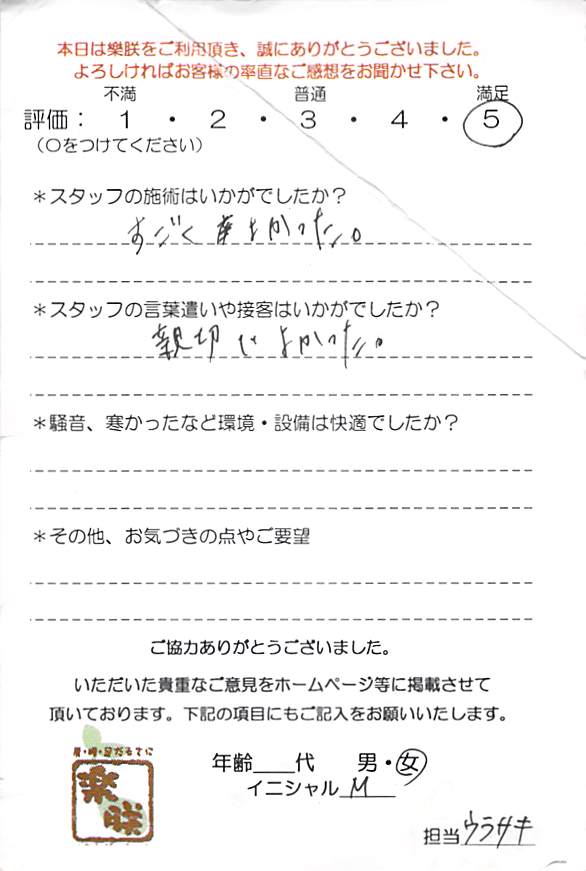 本日は樂朕をご利用頂き、誠にありがとうございました。
よろしければお客様の率直なご感想をお聞かせ下さい。
不満 普通 満足
評価： 1 ・ 2 ・ 3 ・ 4 ・ 5
（○をつけてください）
＊スタッフの施術はいかがでしたか？
すごく よかった。
＊スタッフの言葉遣いや接客はいかがでしたか？
親切でよかった。
＊騒音、寒かったなど環境・設備は快適でしたか？
＊その他、お気づきの点やご要望
ご協力ありがとうございました。
いただいた貴重なご意見をホームページ等に掲載させて
頂いております。下記の項目にもご記入をお願いいたします。
年齢＿＿代 男・女
イニシャル M
樂朕
担当 ウラサキ